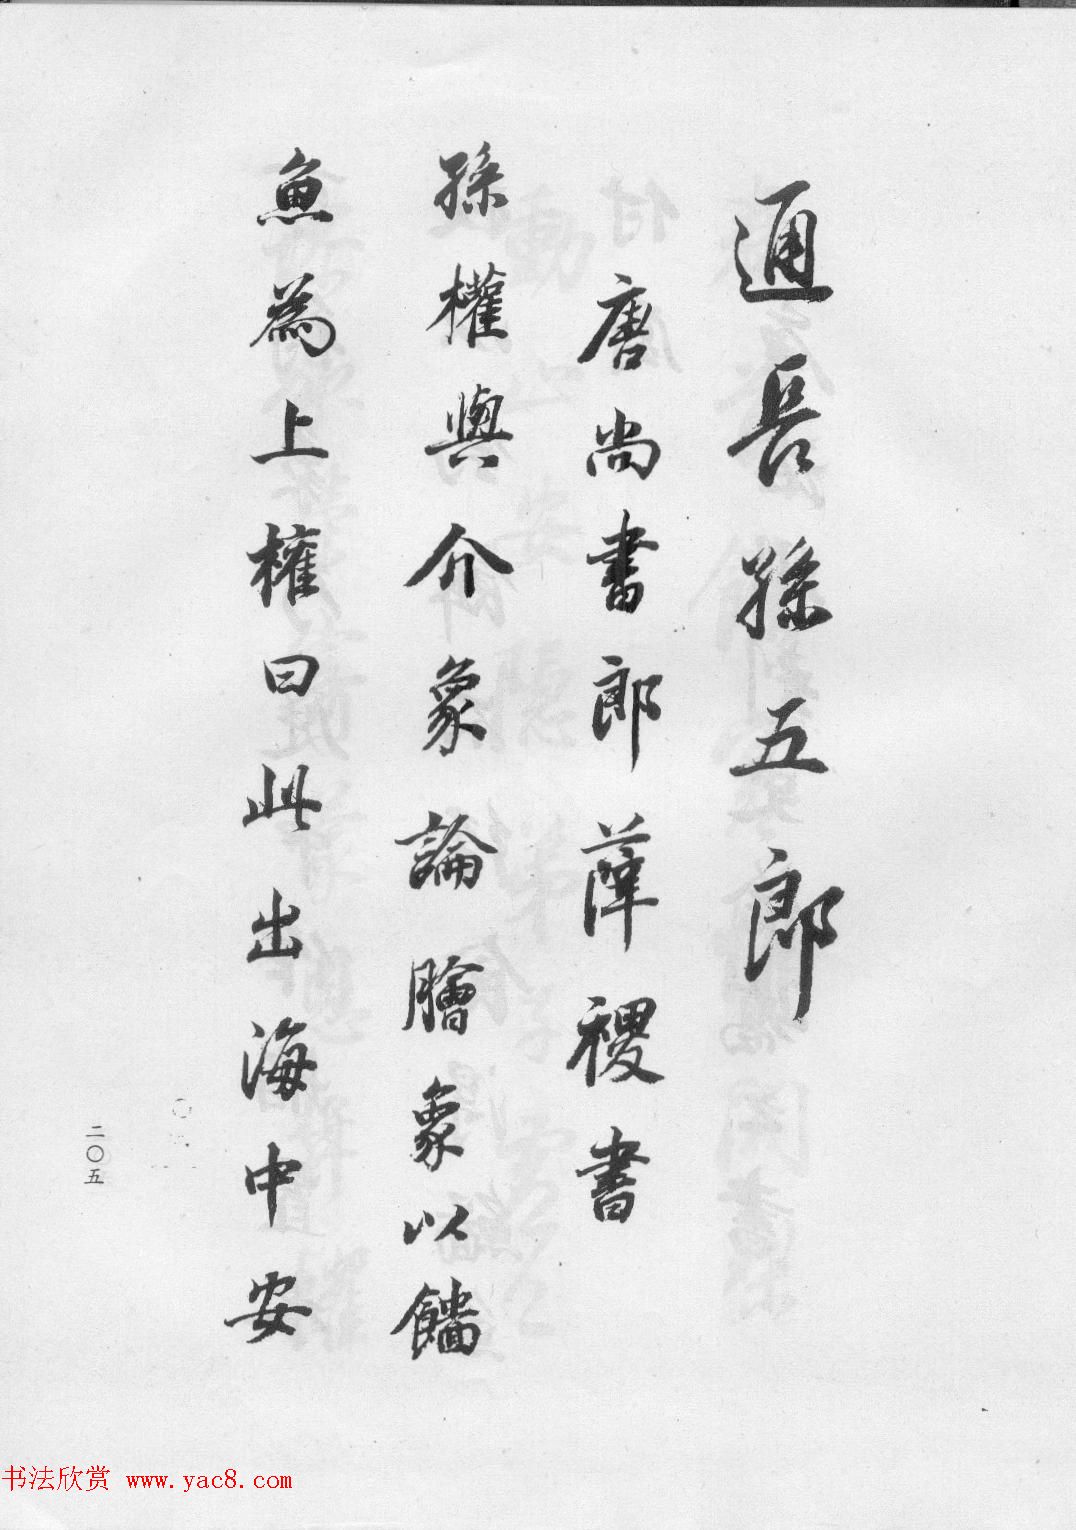 通長孫五郎
唐尚書郎薛稷書
孫權與介象論膾象以鯔
魚為上權曰此出海中安
二〇五
书法欣赏 www.yac8.com